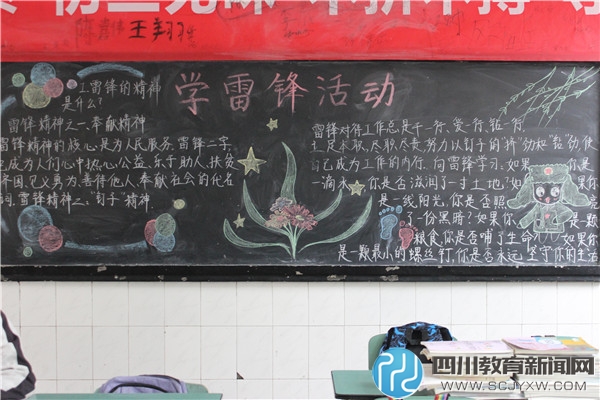 王翔
学雷锋活动
1.雷锋的精神
是什么?
雷锋精神之一、奉献精神
雷锋精神的核心是为人民服务,雷锋二字
已成为人们心中热心公益、乐于助人、扶贫
济困、见义勇为、善待他人、奉献社会的代名
词。雷锋精神之二、"钉子"精神
雷锋对待工作总是干一行、爱一行、钻一行
自己成为工作的内行,向雷锋学习,如果你是
一滴水,你是否滋润了一寸土地?如
是一线阳光,你是否照
了一份黑暗?如果你是一颗
粮食,你是否哺了生命
是一颗最小的螺丝钉,你是否永远坚守你的生活
四川教育新闻网
WWW.SCJYXW.COM